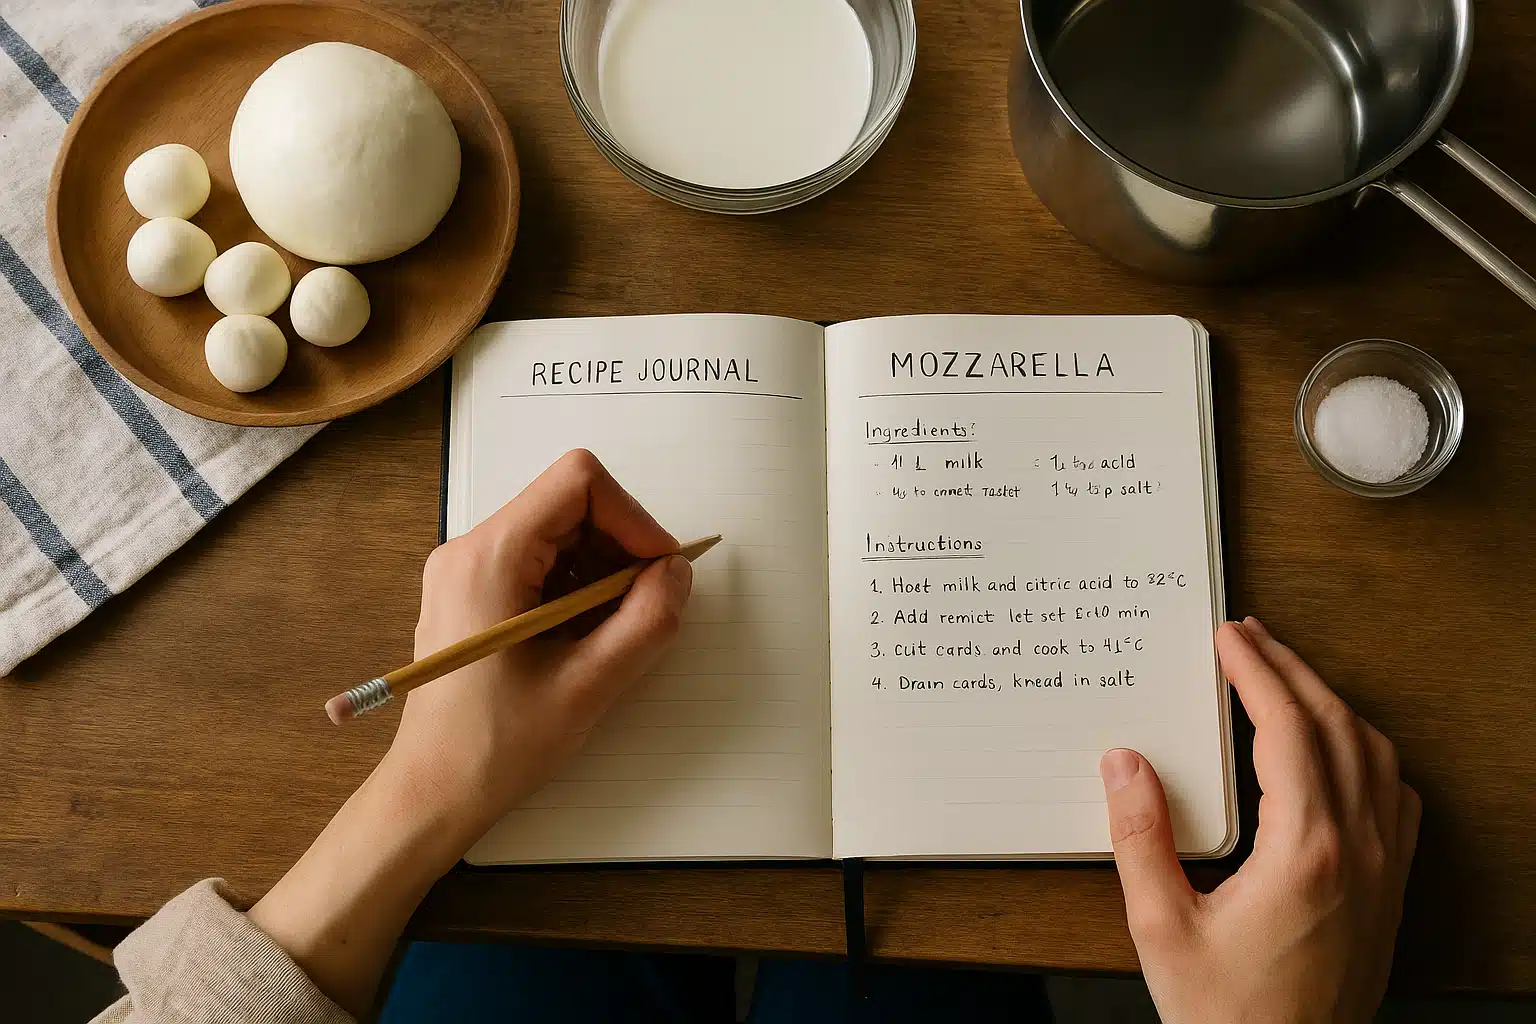 RECIPE JOURNAL
MOZZARELLA
Ingredients:
milk acid
to salt
Instructions
1. Host milk and citric acid to 32°C
2. Add remict let set min
3. cut cards and cook to 41°C
4. Drain cards, knead in salt